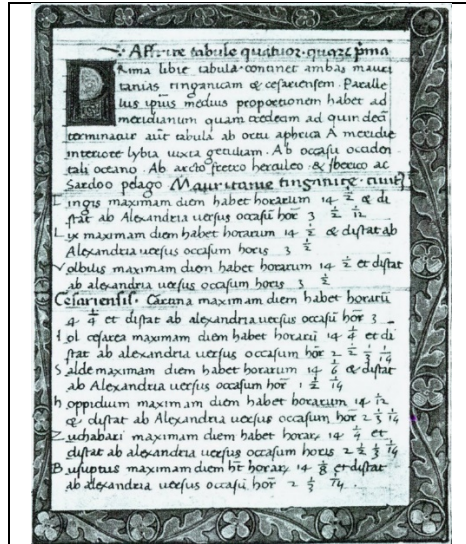 Affrice tabule quatuor. quarū prima
Prima libie tabula continet ambas mauri
tanias tinganicam & cesariensem. Paralle
lus ipius medius proportionem habet ad
meridianum quam tredecim ad quindecī
terminatur aūt tabula ab ortu aphrica A meridie
interiore lybia iuxta getuliam. Ab occasu occiden
tali oceano. Ab arcto freto herculeo. & Iberico ac
Sardoo pelago Mauritanie tinganite
Tingis maximam diem habet horarum 14 1/2 & di
stat ab Alexandria uersus occasū hor 3 1/2 1/12
Lix maximam diem habet horarum 14 1/2 & distat ab
Alexandria uersus occasum horis 3 1/2
Volbilis maximam diem habet horarum 14 1/2 et distat
ab alexandria uersus occasum horis 3 1/2
Cesariensis. Cartana maximam diem habet horarū
et distat ab alexandria uersus occasū hor 3
Iol cesarea maximam diem habet horarū 14 1/4 et di
stat ab alexandria uersus occasum hor 2 1/2 1/3 1/14
Salde maximam diem habet horarum 14 1/6 & distat
ab Alexandria uersus occasum hor 1 1/2 1/14
hoppidium maximam diem habet horarum 14 1/12
& distat ab Alexandria uersus occasum hor 2 1/3 1/14
Zuchabari maximam diem habet horar 14 1/4 et
distat ab alexandria uersus occasum horis 2 1/2 1/3 1/14
Busuptus maximam diem hr horar 14 1/8 et distat
ab alexandria uersus occasū hor 2 1/3 1/14.